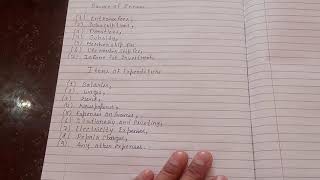 Source of Income
(1) Entrance fees,
(2) Subscriptions,
(3) Donations,
(4) Subsidy,
(5) Membership fee,
(6) Life membership fee,
(7) Income for Investment.
Items of Expenditure
(1) Salaries,
(2) Wages,
(3) Rent,
(4) Newspapers,
(5) Expenses on Games,
(6) Stationery and Printing,
(7) Electricity Expenses,
(8) Repair Charges,
(9) Any other expenses.